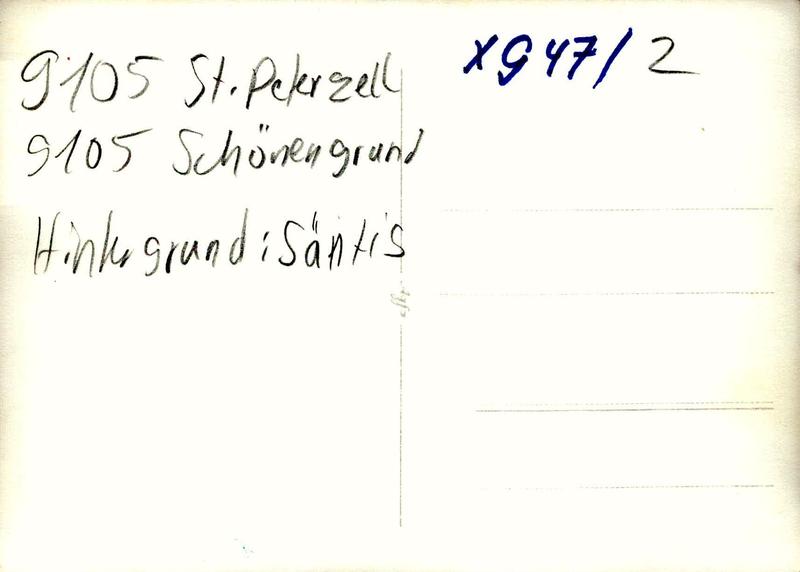 9105 St. Peterzell
9105 Schönengrund
Hintergrund: Säntis
XG 47/2